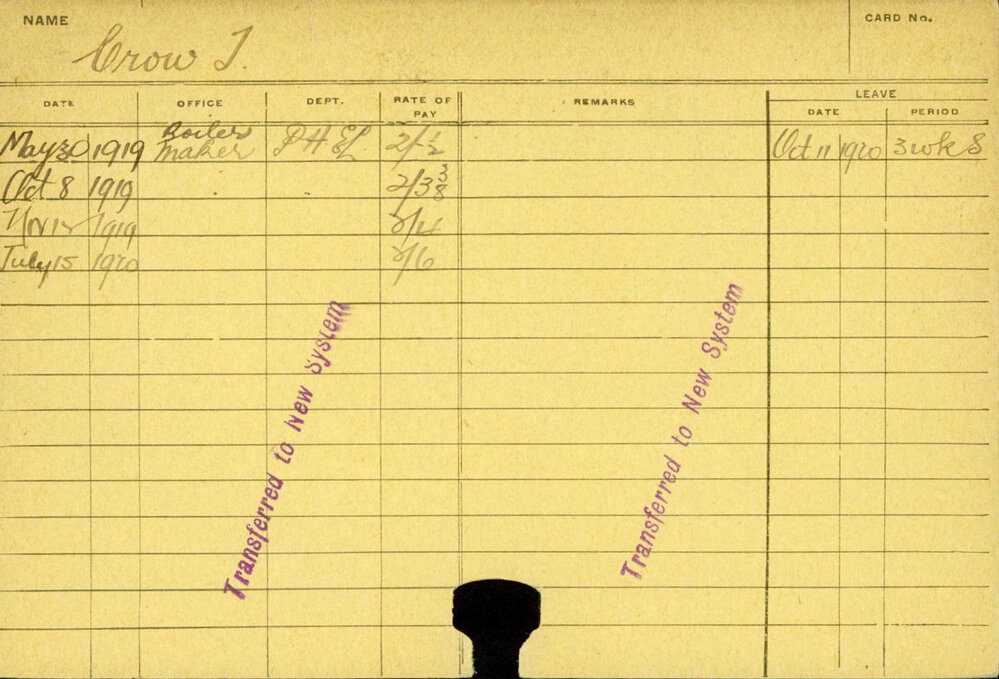 NAME
Crow T.
CARD No.
DATE OFFICE DEPT. RATE OF PAY REMARKS LEAVE
DATE PERIOD
May 30 1919 Boiler maker P H & L 2/- 1/2 Oct 11 1920 3 wks
Oct 8 1919 2/3 3/8
Nov 12 1919 2/4
July 15 1920 2/6
Transferred to New System
Transferred to New System